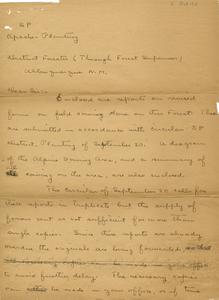 SP
Apache - Planting
District Forester (Through Forest Supervisor)
Albuquerque N.M.
Dear Sir:-
Enclosed are reports on revised
forms on field sowing done on this Forest. They
are submitted in accordance with Circular SP
District, Planting of September 20. A diagram
of the Alpine Sowing Area, and a summary of
the sowing on the area, are also enclosed.
The Circular of September 20 calls for
these reports in duplicate but the supply of
forms sent us not sufficient for more than
single copies. Since these reports are already
overdue the originals are being forwarded,
to avoid further delay. The necessary copies
can be made in your office, or if time